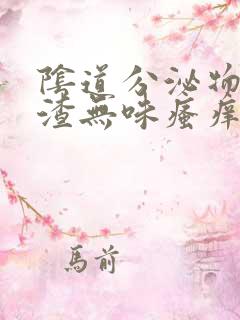 陰道分泌物
渣無味瘙癢
馬前